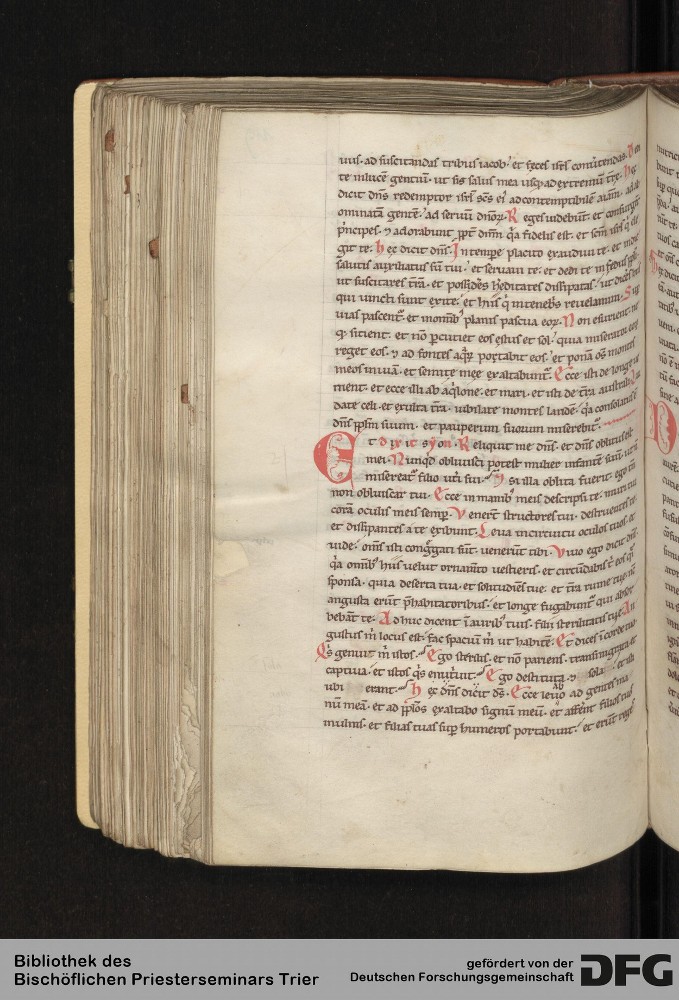 uus. ad suscitandas tribus iacob. et feces isrl conuertendas. Dedi
te in lucem gentium. ut sis salus mea usq; ad extremum tre. Hec
dicit dns redemptor isrl scs ei ad contemptibilem aiam. ad ab
ominatam gentem. ad seruum dnorum. Reges uidebunt. et consurgent
principes. et adorabunt ppt dnm qa fidelis est. et scm isrl q ele
git te. Hec dicit dns. In tempore placito exaudiui te. et in die
salutis auxiliatus sum tui. et seruaui te. et dedi te in fedus ppli.
ut suscitares tram. et possideres hereditates dissipatas. ut diceres his
qui uincti sunt exite. et hiis q in tenebris reuelamini. Sup
uias pascentur. et in omnib planis pascua eorum. Non esurient. ne
q; sitient. et non percutiet eos estus et sol. quia miserator eorum
reget eos. et ad fontes aquarum portabit eos. et ponam os montes
meos in uiam. et semite mee exaltabuntur. Ecce isti de longe ue
nient. et ecce illi ab aqlone. et mari. et isti de terra australi. Lau
date celi. et exulta tra. iubilate montes laudem. qa consolatus e
dns pplm suum. et pauperum suorum miserebitur.
Et dixit syon. Reliquit me dns. et dns oblitus est
mei. Nunqd obliuisci potest mulier infantem suum. ut n
misereatur filio uteri sui. Et si illa oblita fuerit. ego tn
non obliuiscar tui. Ecce in manib meis descripsi te. muri tui
coram oculis meis semper. Venerunt structores tui. destruentes te.
et dissipantes a te exibunt. Leua in circuitu oculos tuos. et
uide. oms isti congregati sunt. uenerunt tibi. Viuo ego dicit dns.
qa omnib hiis uelut ornamento uestieris. et circundabis t eos qsi
sponsa. quia deserta tua. et solitudines tue. et terra ruine tue. nc
angusta erunt pre habitatoribus. et longe fugabuntur qui absor
bebant te. Adhuc dicent in aurib tuis. filii sterilitatis tue. An
gustus m locus est. fac spacium m ut habitem. Et dices in corde tuo
Qs genuit m istos. Ego sterilis. et non pariens. transmigrata et
captiua. et istos qs enutriuit. Ego destituta. et sola. et isti
ubi erant. Hec dns dicit ds. Ecce leuabo ad gentes ma
num meam. et ad pplos exaltabo signum meum. et afferent filios tuos
in ulnis. et filias tuas sup humeros portabunt. et erunt reges
Bibliothek des
Bischöflichen Priesterseminars Trier
gefördert von der
Deutschen Forschungsgemeinschaft
DFG